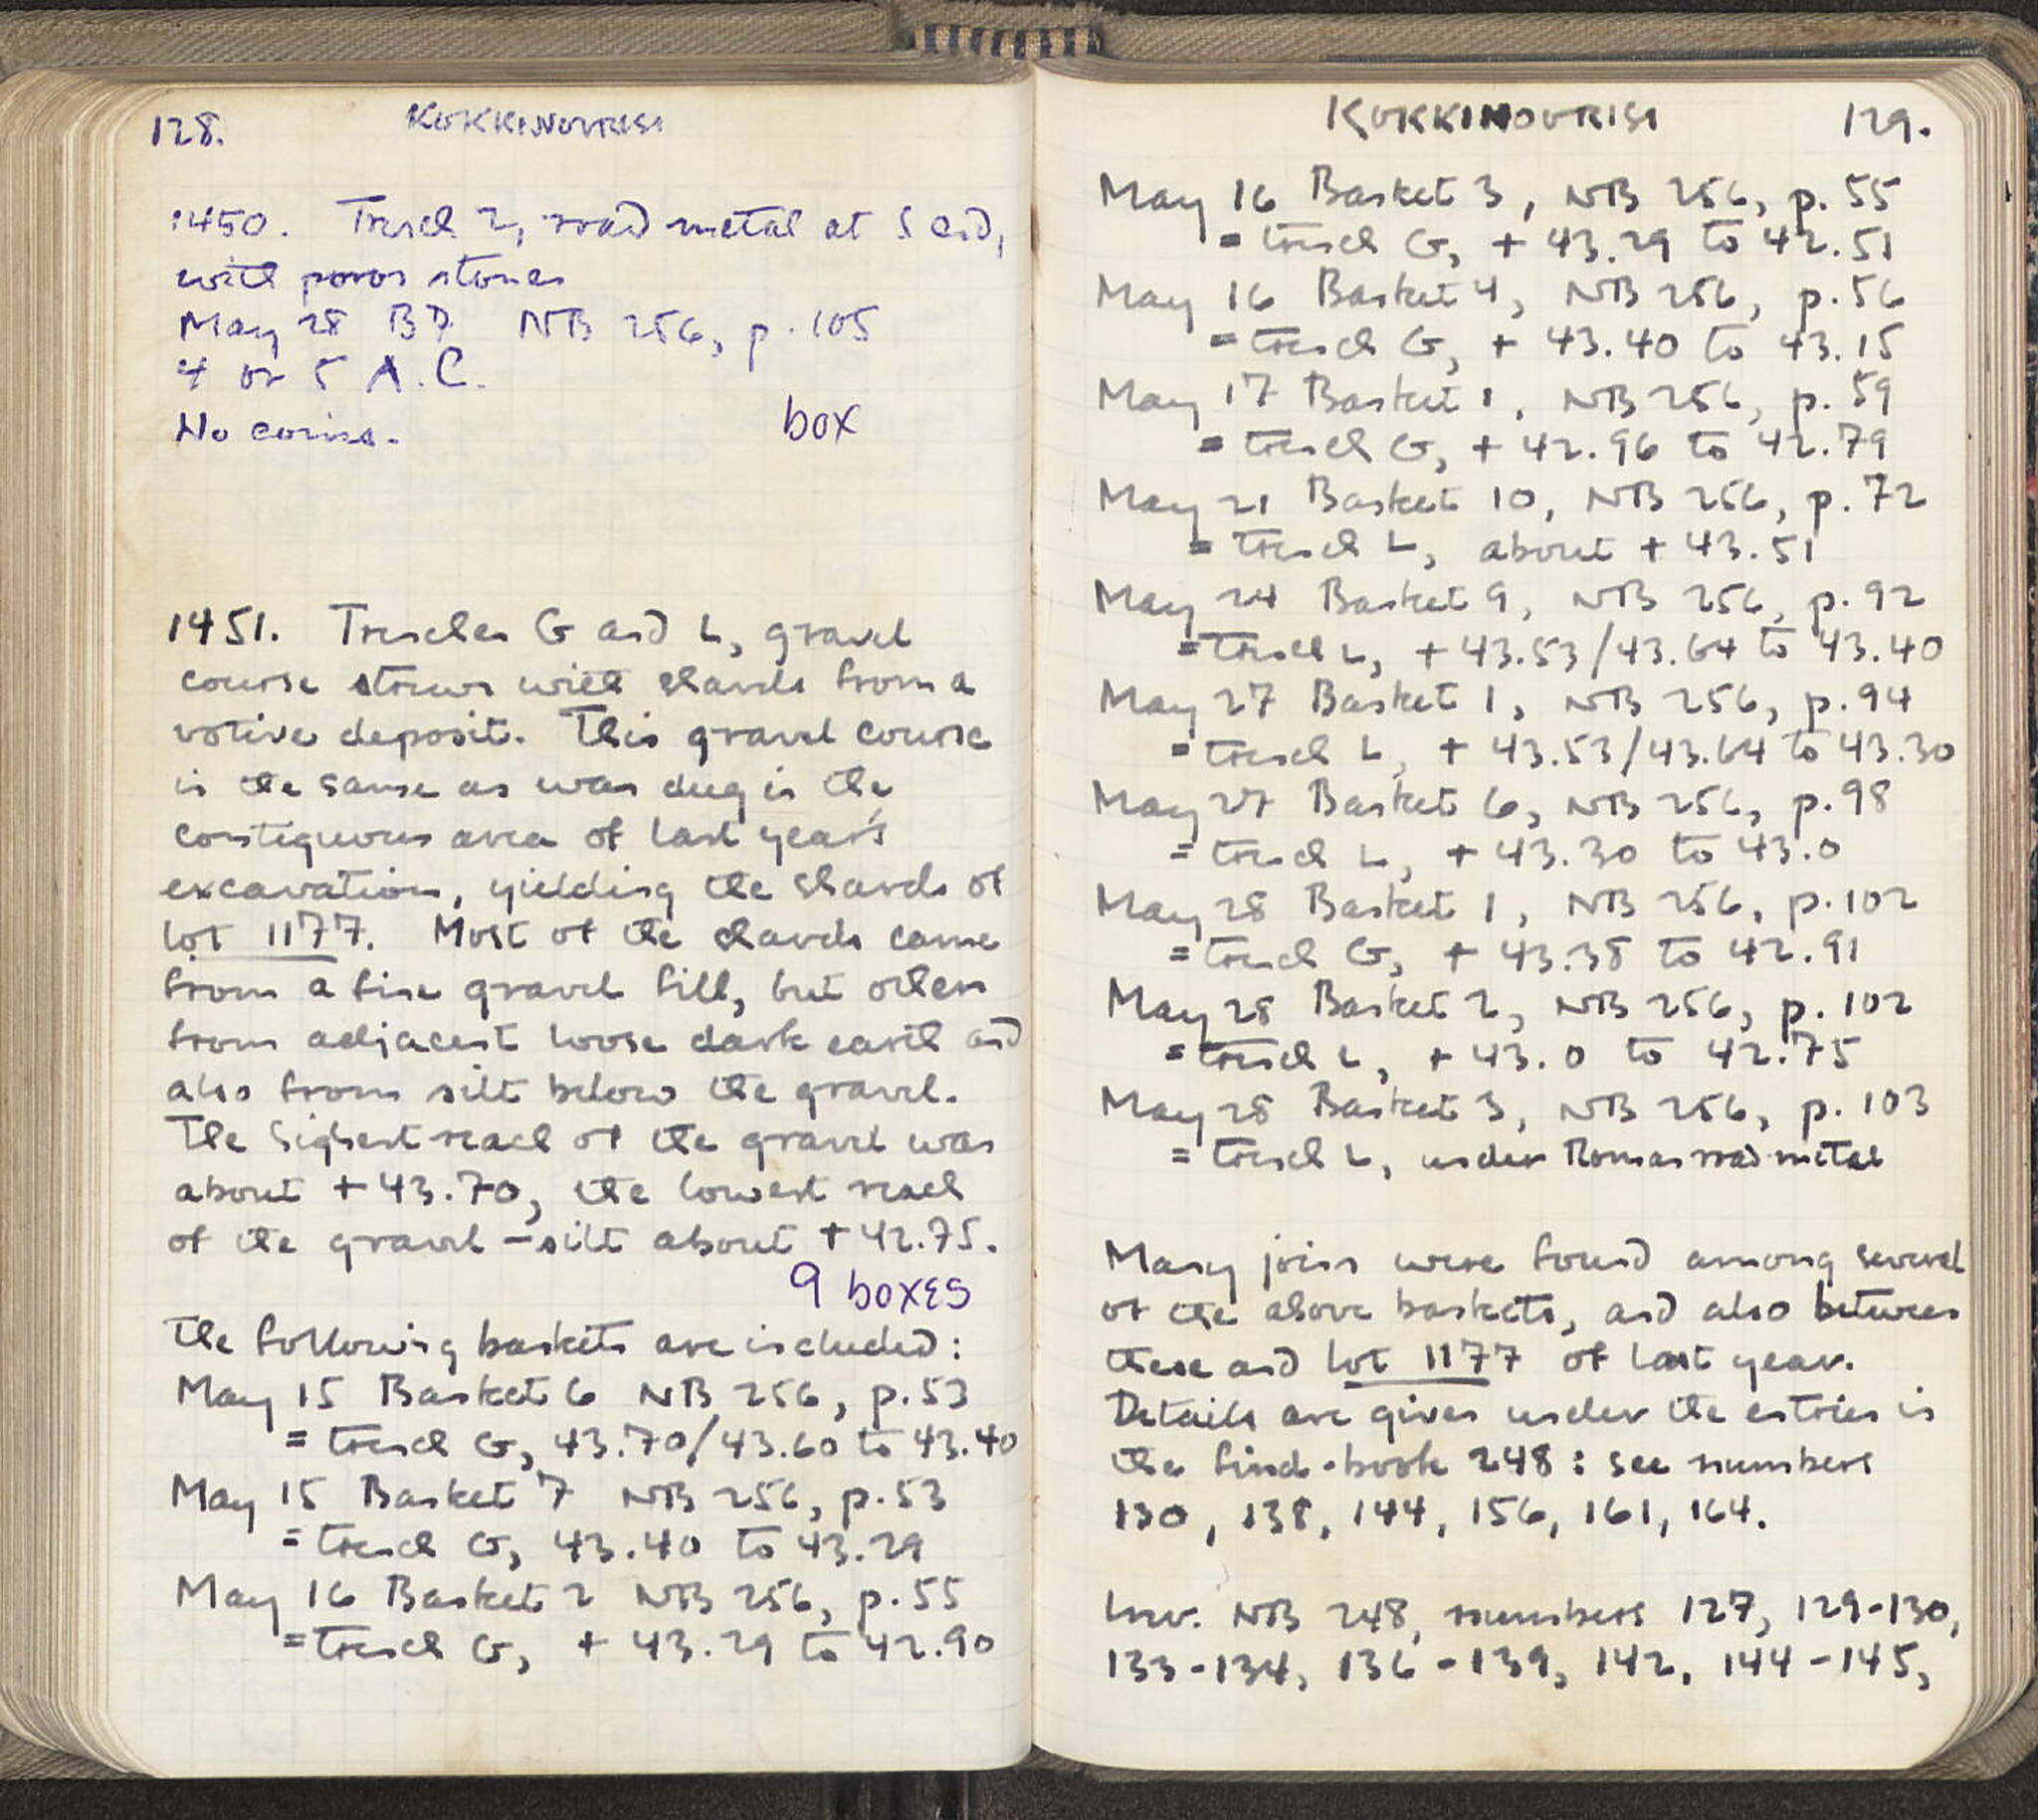 128. KOKKINOVRISI
1450. Trench 2, road metal at S end,
with poros stones
May 28 B7 NB 256, p. 105
4 or 5 A.C.
No coins. box
1451. Trenches G and L, gravel
course strewn with shards from a
votive deposit. This gravel course
is the same as was dug in the
contiguous area of last year's
excavation, yielding the shards of
lot 1177. Most of the shards came
from a fine gravel fill, but others
from adjacent loose dark earth and
also from silt below the gravel.
The highest reach of the gravel was
about + 43.70, the lowest reach
of the gravel-silt about + 42.75.
9 boxes
The following baskets are included:
May 15 Basket 6 NB 256, p. 53
= trench G, 43.70/43.60 to 43.40
May 15 Basket 7 NB 256, p. 53
= trench G, 43.40 to 43.29
May 16 Basket 2 NB 256, p. 55
= trench G, + 43.29 to 42.90
KOKKINOVRISI 129.
May 16 Basket 3, NB 256, p. 55
= trench G, + 43.29 to 42.51
May 16 Basket 4, NB 256, p. 56
= trench G, + 43.40 to 43.15
May 17 Basket 1, NB 256, p. 59
= trench G, + 42.96 to 42.79
May 21 Basket 10, NB 256, p. 72
= trench L, about + 43.51
May 24 Basket 9, NB 256, p. 92
= trench L, + 43.53/43.64 to 43.40
May 27 Basket 1, NB 256, p. 94
= trench L, + 43.53/43.64 to 43.30
May 27 Basket 6, NB 256, p. 98
= trench L, + 43.30 to 43.0
May 28 Basket 1, NB 256, p. 102
= trench G, + 43.38 to 42.91
May 28 Basket 2, NB 256, p. 102
= trench L, + 43.0 to 42.75
May 28 Basket 3, NB 256, p. 103
= trench L, under Roman road metal
Many joins were found among several
of the above baskets, and also between
these and lot 1177 of last year.
Details are given under the entries in
the find-book 248: see numbers
130, 138, 144, 156, 161, 164.
Inv. NB 248, numbers 127, 129-130,
133-134, 136-139, 142, 144-145,